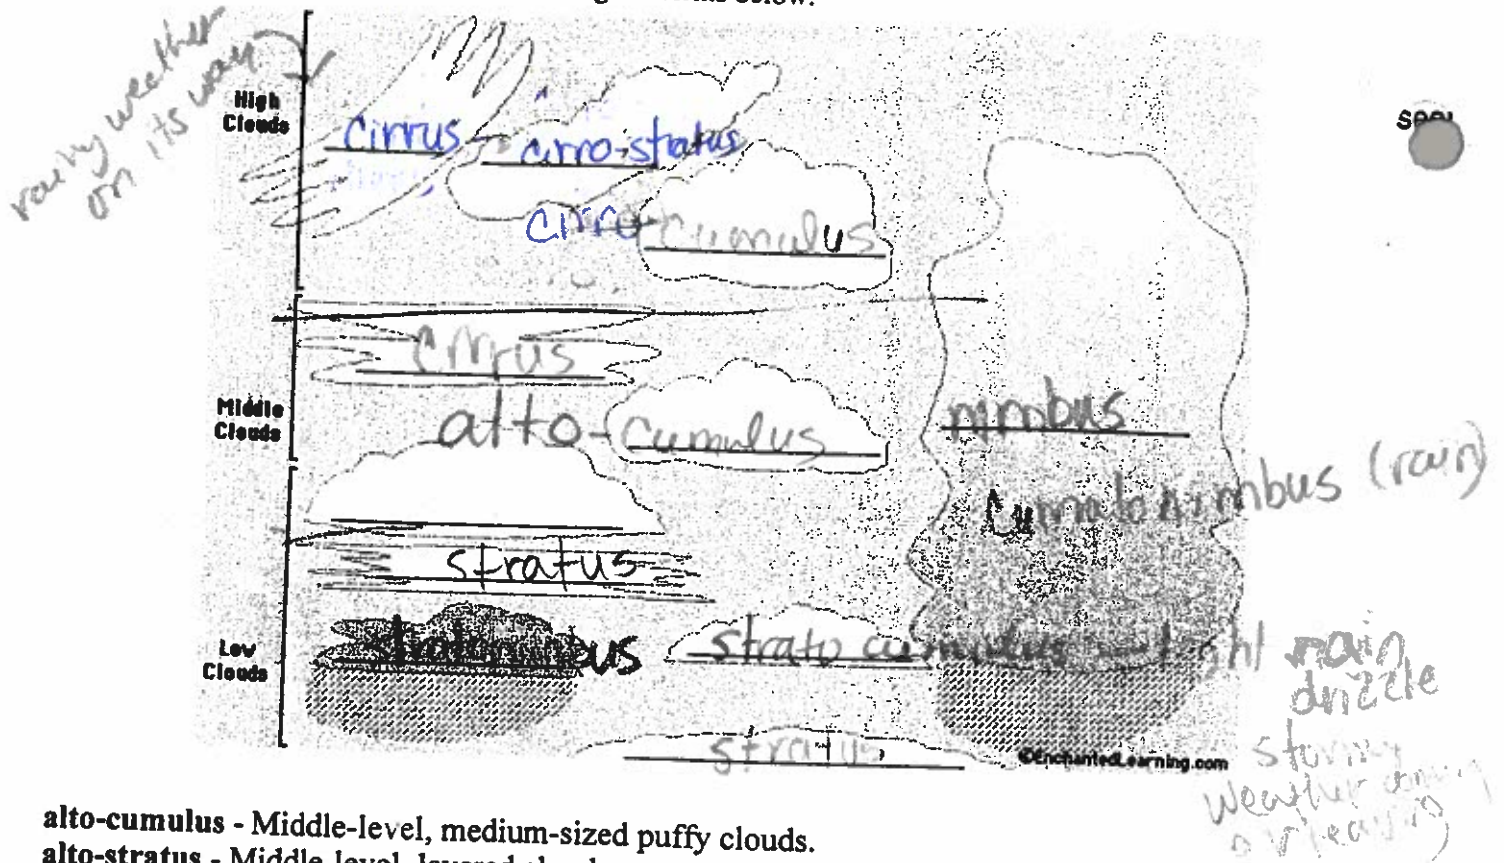 below.
rainy weather
on its way
High
Clouds
cirrus
cirro-stratus
cirro-cumulus
Middle
Clouds
cirrus
alto-cumulus
nimbus
cumulonimbus (rain)
stratus
Low
Clouds
stratonimbus
strato cumulus light rain
drizzle
stratus
©EnchantedLearning.com
stormy
weather coming
or leaving
alto-cumulus - Middle-level, medium-sized puffy clouds.
alto-stratus - Middle-level, layered